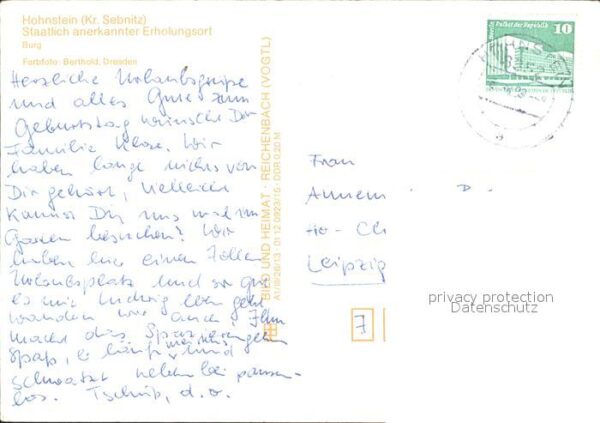 Hohnstein (Kr. Sebnitz)
Staatlich anerkannter Erholungsort
Burg
Farbfoto: Berthold, Dresden
Herzliche Urlaubsgrüße
und alles Gute zum
Geburtstag wünscht Dir
Familie Klose. Wir
haben lange nichts von
Dir gehört, vielleicht
kannst Du uns mal im
Garten besuchen? Wir
haben hier einen tollen
Urlaubsplatz und so gut
es mit Ludwig eben geht
wandern wir auch. Ihm
macht das Spazierengehen
Spaß, er läuft meist und
schwatzt neben bei pausen-
los. Tschüß, d. o.
BILD UND HEIMAT · REICHENBACH (VOGTL)
A1/III/26/13 01 12 0923/15 DDR 0,20 M
Palast der Republik
10
Frau
Annem D.
Leipzig
7
privacy protection
Datenschutz